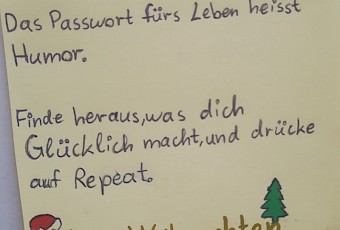 Das Passwort fürs Leben heisst
Humor.
Finde heraus, was dich
Glücklich macht, und drücke
auf Repeat.
Weihnachten